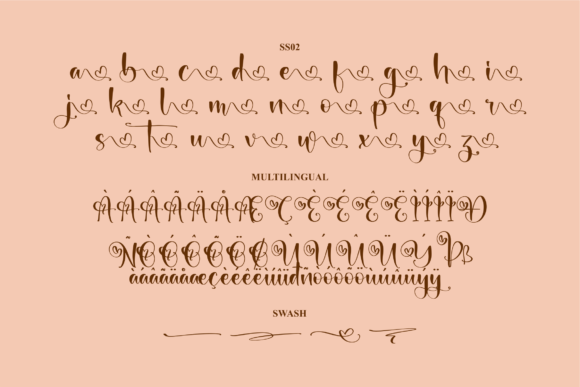 SS02
a b c d e f g h i
j k l m n o p q r
s t u v w x y z
MULTILINGUAL
ÀÁÂÃÄÅÆÇÈÉÊËÌÍÎÏÐ
ÑÒÓÔÕÖØÙÚÛÜÝÞß
àáâãäåæçèéêëìíîïñòóôõöùúûüýÿ
SWASH